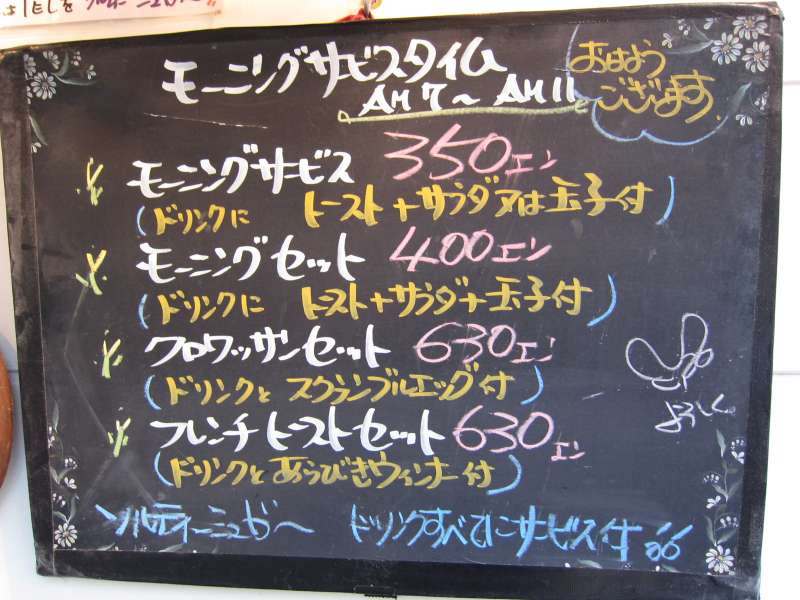 モーニングサービスタイム
AM 7 ~ AM 11
おはよう
ございます.
モーニングサービス 350エン
(ドリンクに トースト+サラダ又は玉子付)
モーニングセット 400エン
(ドリンクに トースト+サラダ+玉子付)
クロワッサンセット 630エン
(ドリンクと スクランブルエッグ付)
フレンチトーストセット 630エン
(ドリンクと あらびきウィンナー付)
ドリンクすべてにサービス付